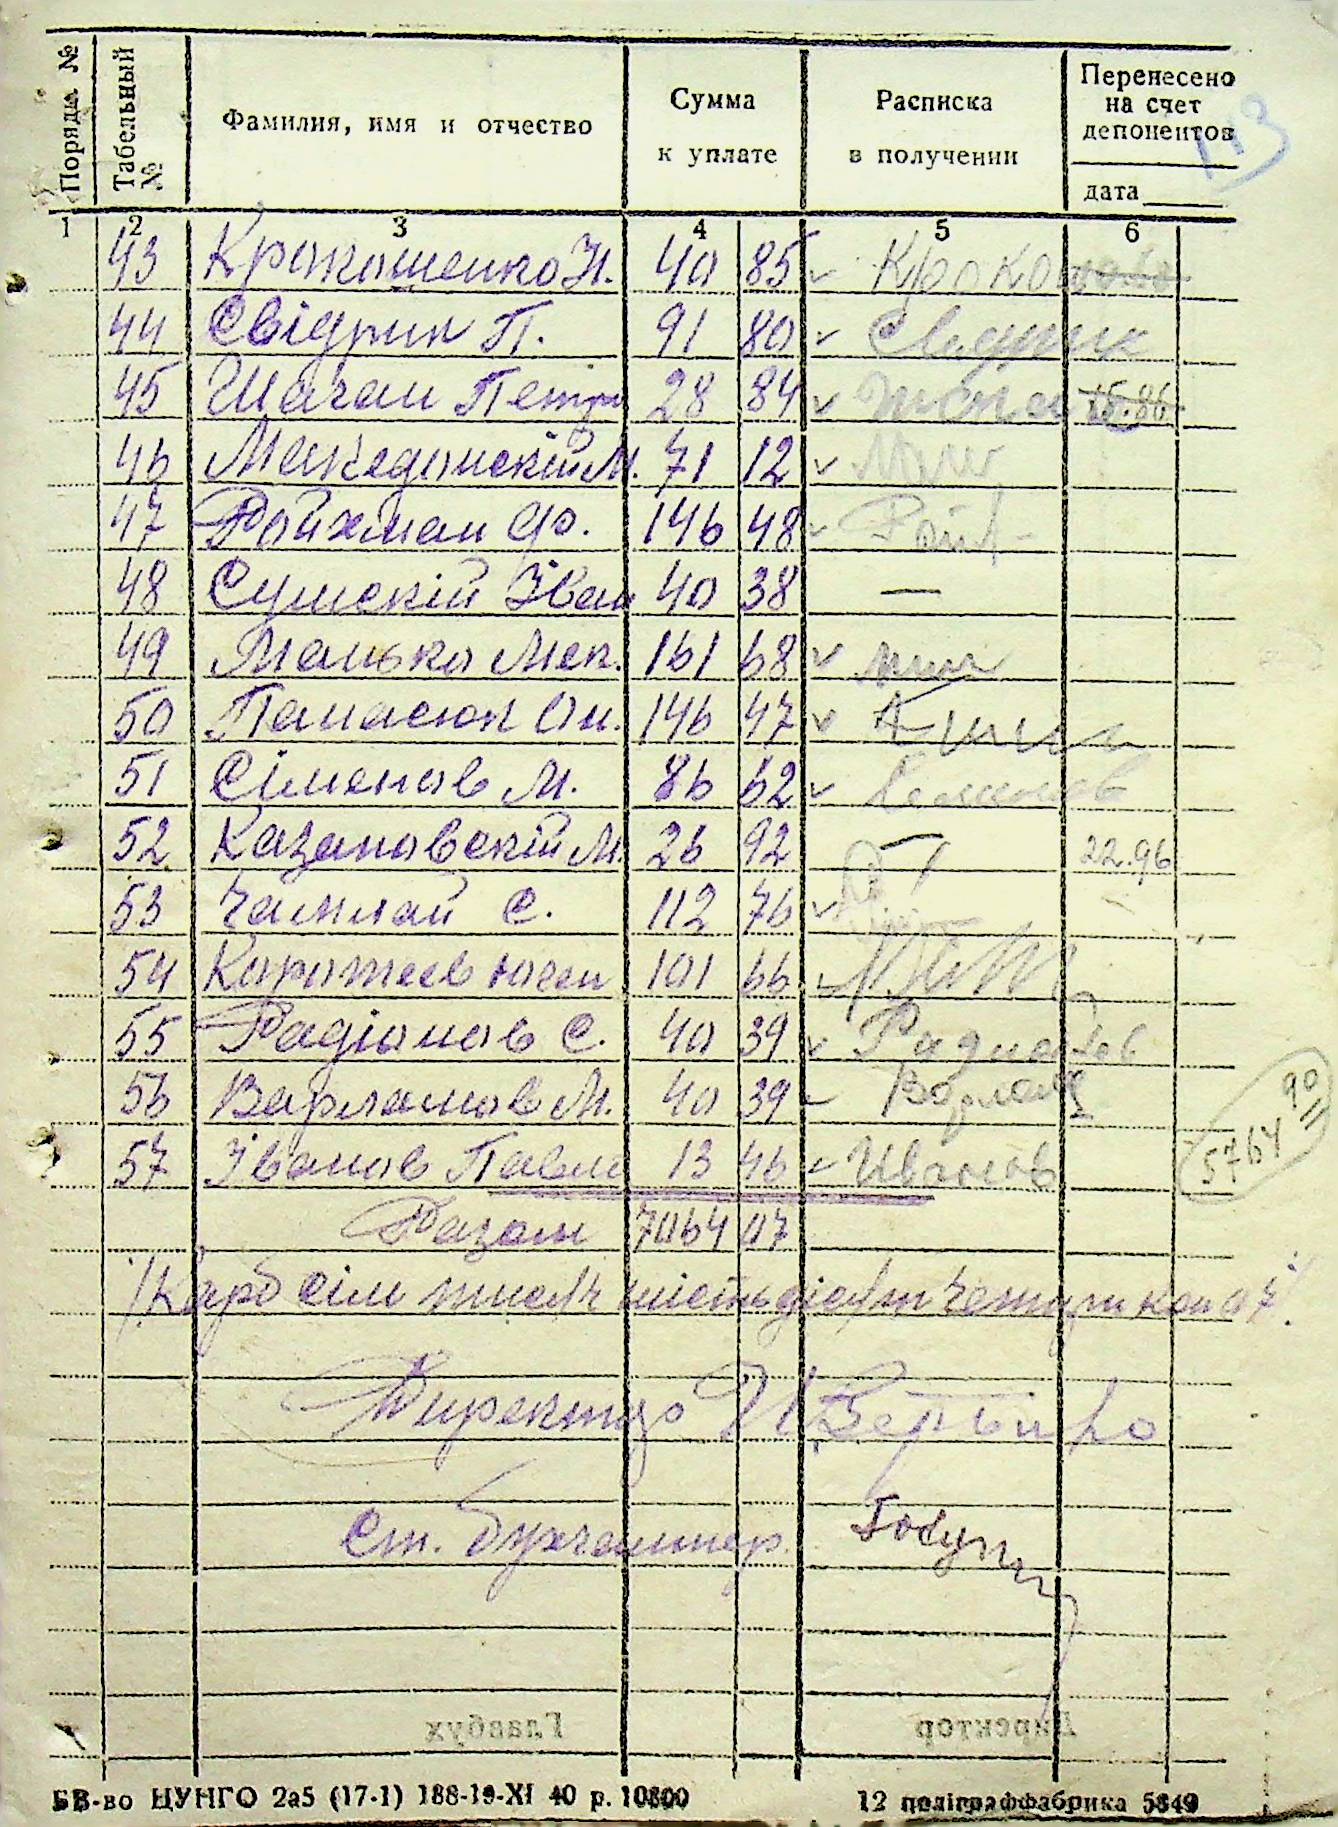 Порядк. № Табельный № Фамилия, имя и отчество Сумма к уплате Расписка в получении Перенесено на счет депонентов дата
113
1 2 3 4 5 6
43 Крокошенко Н. 40 85
44 Свідрик П. 91 80 Свидрик
45 Шагай Петро 28 84 15.86
46 Македонскій М. 71 12
47 Ройхман Ф. 146 48 Рой
48 Сумскій Іван 40 38 —
49 Манько Мек. 161 68
50 Панасюк Он. 146 47
51 Сіменов М. 86 62 Семенов
52 Казановскій М. 26 92 — 22.96
53 Чамлай С. 112 76
54 Коротеев 101 66
55 Радіонов С. 40 39 Радионов
56 Варламов М. 40 39 Варлам
57 Іванов Павло 13 46 Иванов
5764 90
Разом 7064 07
/Карб сім тисяч шістьдісят чотири коп 07/.
Директор
Ст. бухгалтер
Главбух Директор
БВ-во ЦУНГО 2а5 (17-1) 188-19-XI 40 р. 10800 12 поліграффабрика 5849